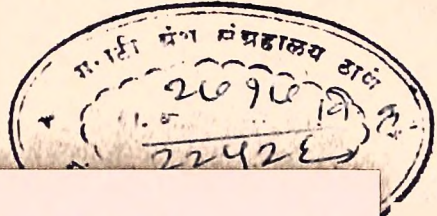 मराठी ग्रंथ संग्रहालय ठाणे
२७१७
२२५२६